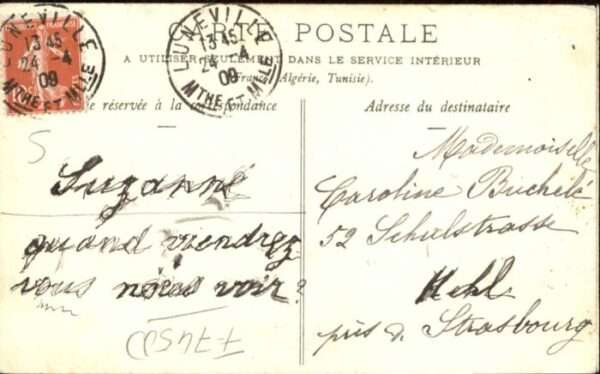 CARTE POSTALE
A UTILISER SEULEMENT DANS LE SERVICE INTÉRIEUR
(France, Algérie, Tunisie).
LUNEVILLE
13 45
24 4
09
MTHE ET MLLE
LUNEVILLE
13 45
24 4
09
MTHE ET MLLE
réservée à la correspondance
Adresse du destinataire
S
Suzanne
quand viendrez
vous nous voir?
Mademoiselle
Caroline Buchelé
52 Schulstrasse
Kehl
près d. Strasbourg